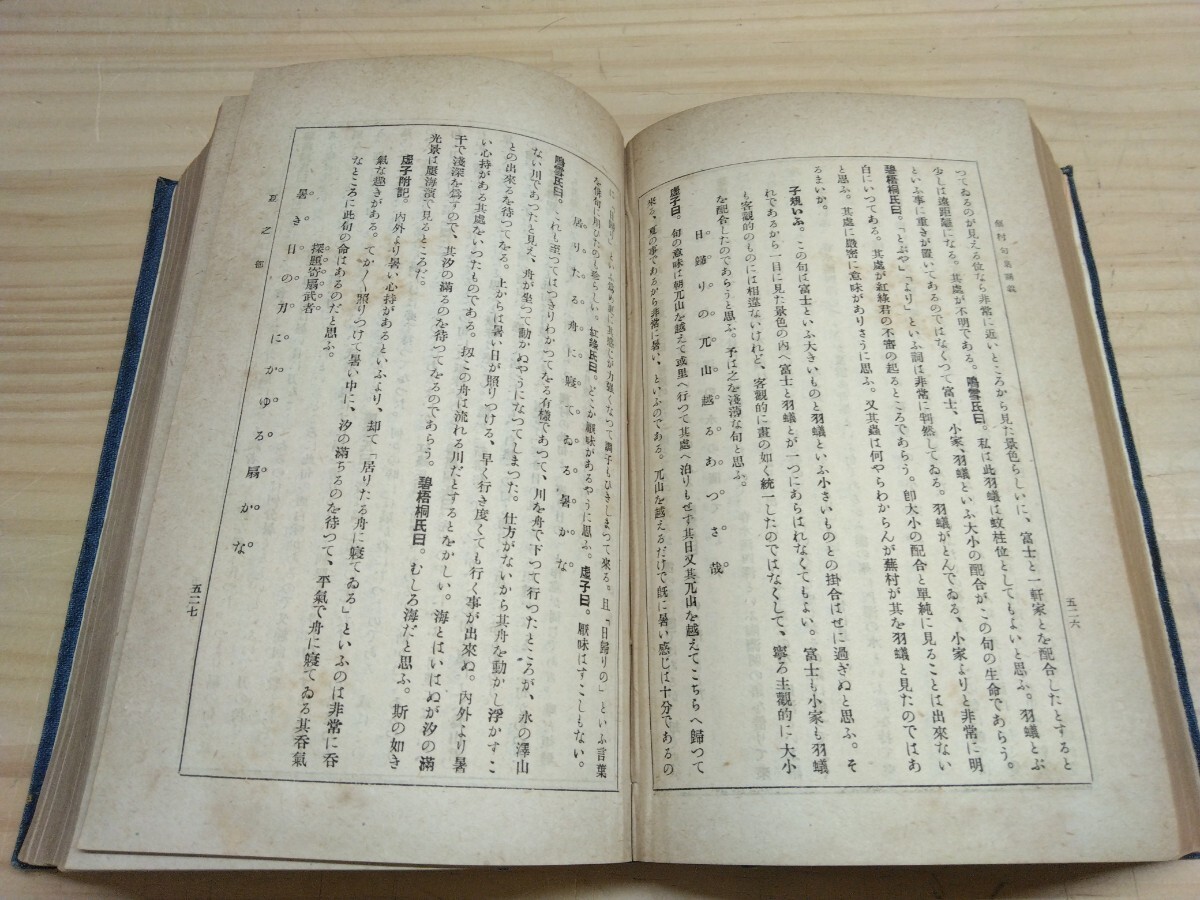 蕪村句集講義
五二六
つてゐるのが見える位なら非常に近いところから見た景色らしいに、富士と一軒家とを配合したとすると
少しは遠距離になる。其處が不明である。鳴雪氏曰。私は此羽蟻は蚊柱位としてもよいと思ふ。羽蟻とぶ
といふ事に重きが置いてあるのではなくつて富士、小家、羽蟻といふ大小の配合がこの句の生命であらう。
碧梧桐氏曰。「とぶや」「より」といふ詞は非常に判然してゐる。羽蟻がとんでゐる、小家よりと非常に明
白にいつてある。其處が紅綠君の不審の起るところであらう。卽大小の配合と單純に見ることは出來ない
と思ふ。其處に緻密に意味がありさうに思ふ。又其蟲は何やらわからんが蕪村が其を羽蟻と見たのではあ
るまいか。
子規いふ。この句は富士といふ大きいものと羽蟻といふ小さいものとの掛合はせに過ぎぬと思ふ。そ
れであるから一目に見た景色の內へ富士と羽蟻とが一つにあらはれなくてもよい。富士も小家も羽蟻
も客觀的のものには相違ないけれど、客觀的に畫の如く統一したのではなくして、寧ろ主觀的に大小
を配合したのであらうと思ふ。予は之を淺薄な句と思ふ。
日歸りの兀山越るあつさ哉
虛子曰。句の意味は朝兀山を越えて或里へ行つて其處へ泊りもせず其日又其兀山を越えてこちらへ歸つて
來る、夏の事であるから非常に暑い、といふのである。兀山を越えるだけで旣に暑い感じは十分であるの
力强くなつて調子もひきしまつて來る。且「日歸りの」といふ言葉
を俳句に用ひたのも珍らしい。紅綠氏曰。どこか厭味があるやうに思ふ。虛子曰。厭味はすこしもない。
居りたる舟に寢てゐる暑かな
鳴雪氏曰。これも至つてはつきりわかつてをる有樣であつて、川を舟で下つて行つたところが、水の澤山
ない川であつたと見え、舟が坐つて動かぬやうになつてしまつた。仕方がないから其舟を動かし浮かすこ
との出來るを待つてをる。上からは暑い日が照りつける、早く行き度くても行く事が出來ぬ。內外より暑
い心持がある其處をいつたものである。扨この舟は流れる川だとするとをかしい。海とはいはぬが汐の滿
干で淺深を爲すので、其汐の滿るのを待つてをるのであらう。碧梧桐氏曰。むしろ海だと思ふ。斯の如き
光景は屢海濱で見るところだ。
虛子附記。內外より暑い心持があるといふより、却て「居りたる舟に寢てゐる」といふのは非常に呑
氣な趣きがある。てか〱照りつけて暑い中に、汐の滿ちるのを待つて、平氣で舟に寢てゐる其呑氣
なところに此句の命はあるのだと思ふ。
探題寄扇武者
暑き日の刃にかゆる扇かな
夏之部
五二七